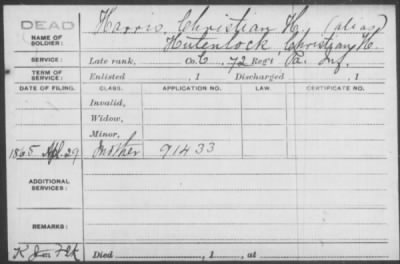 DEAD
NAME OF SOLDIER:
Harris, Christian H., (alias)
Hutenlock, Christian H.
SERVICE: Late rank, Co. C, 72 Reg't Pa. Inf.
TERM OF SERVICE: Enlisted , 1 Discharged , 1
DATE OF FILING. CLASS. APPLICATION NO. LAW. CERTIFICATE NO.
Invalid,
Widow,
Minor,
1865 Apl. 29 Mother 91433
ADDITIONAL SERVICES:
REMARKS:
Died , 1 , at